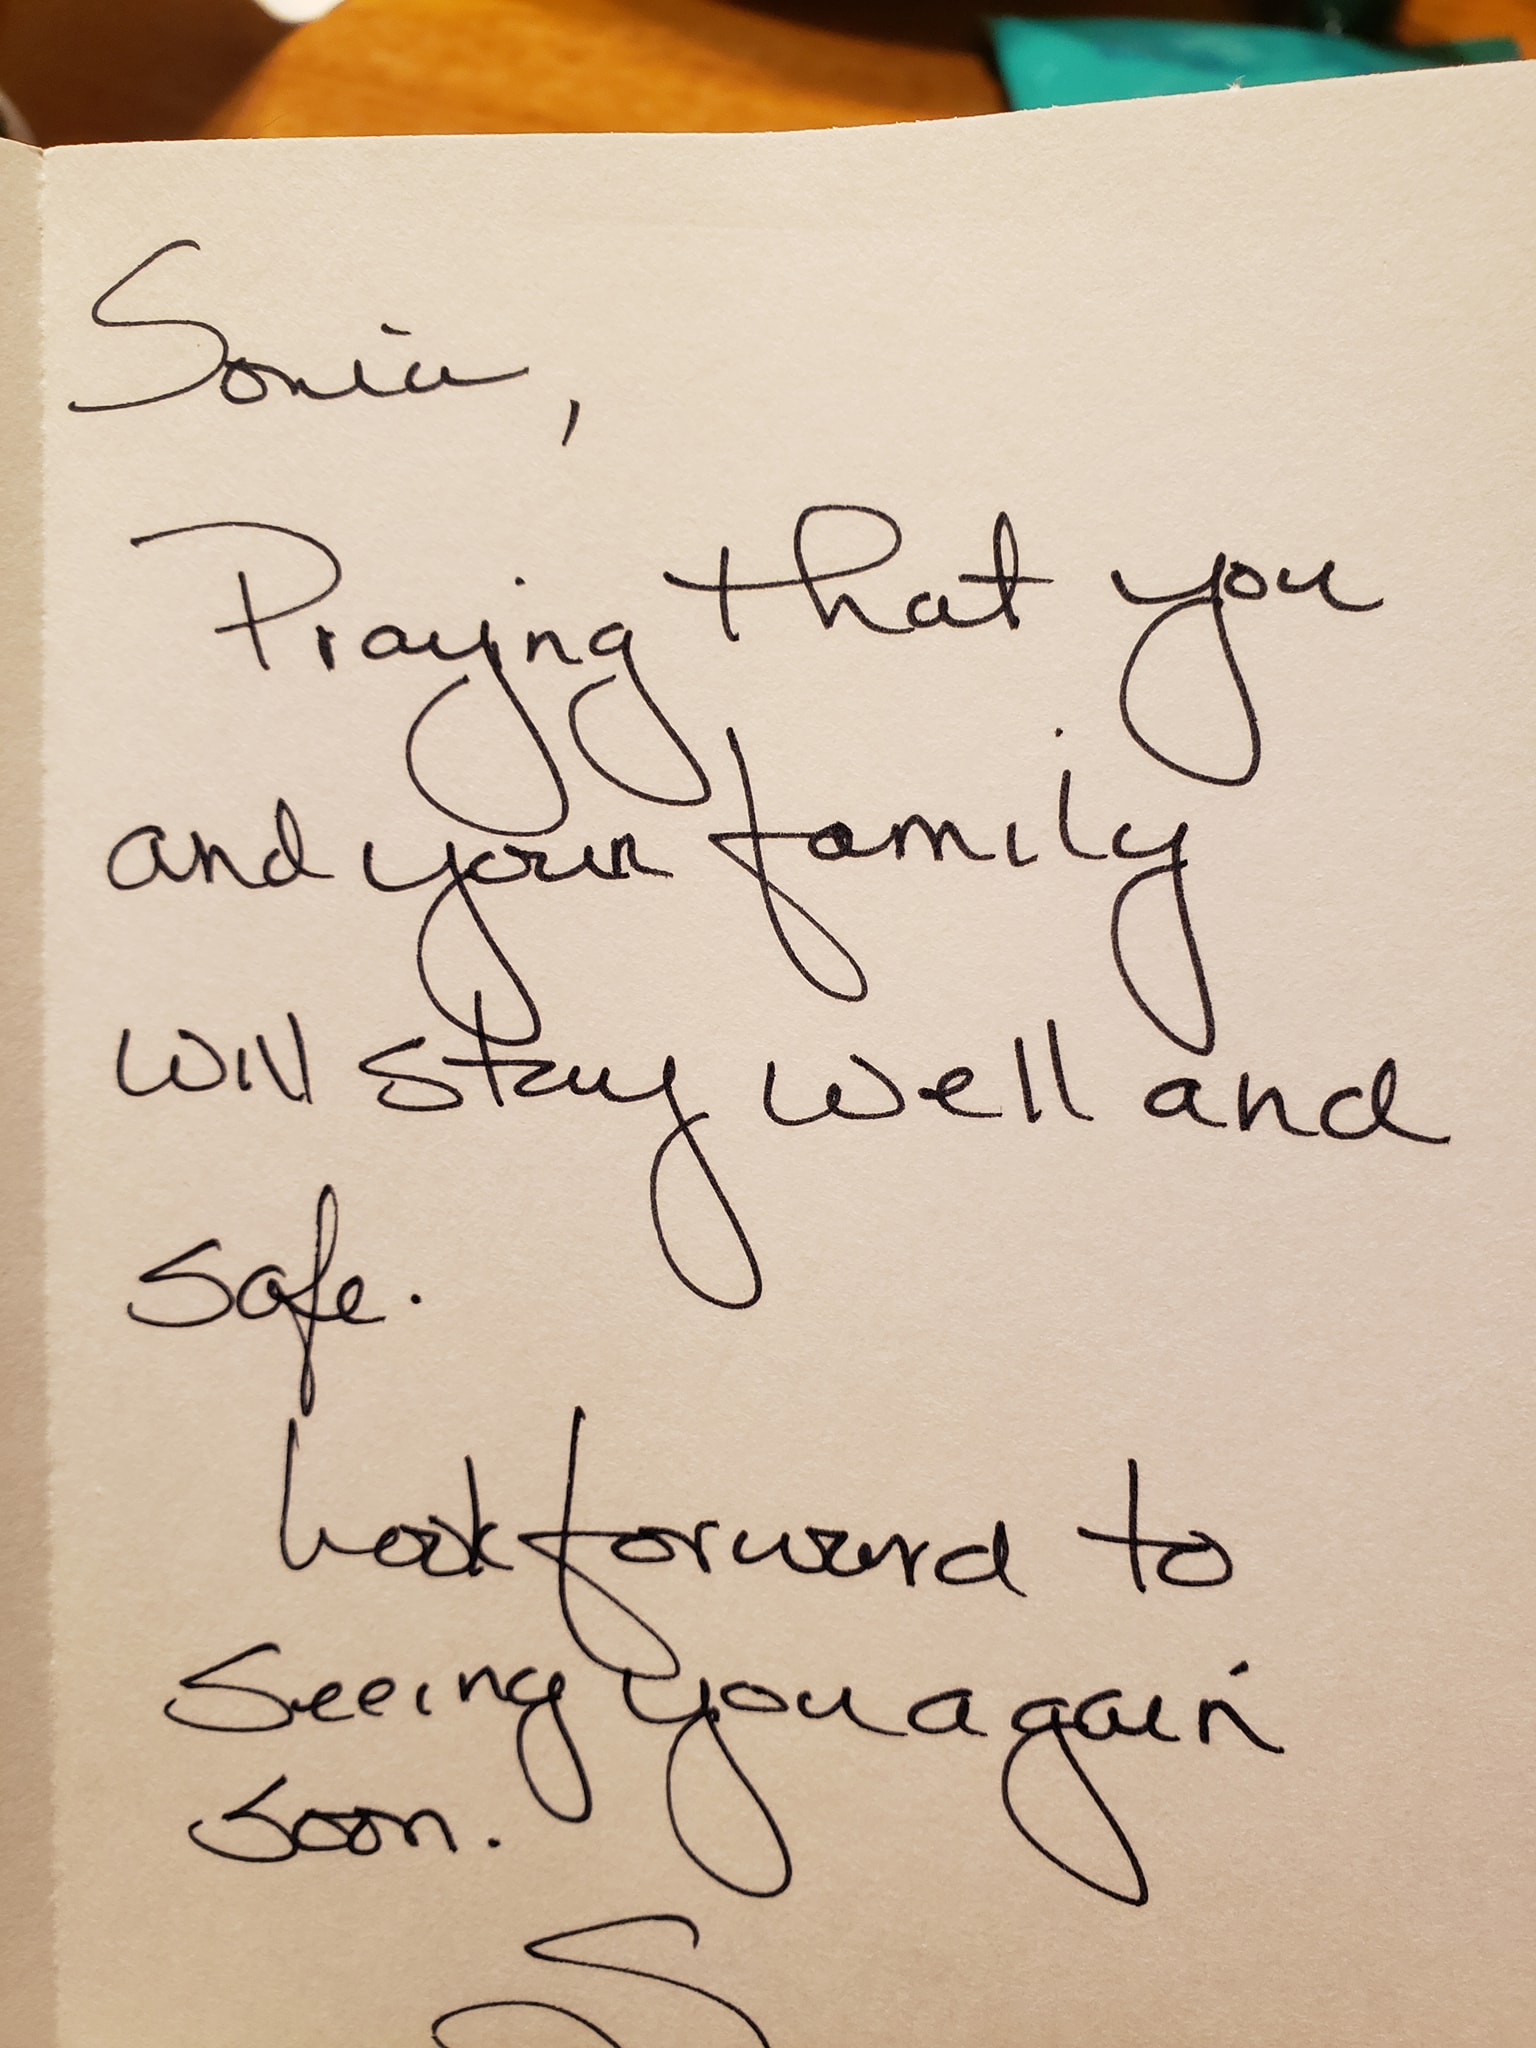 Sonia,
Praying that you
and your family
will stay well and
safe.
Look forward to
seeing you again
soon.